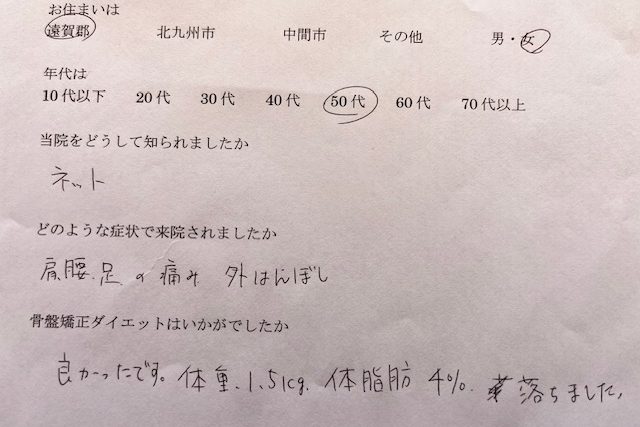 お住まいは
遠賀郡 北九州市 中間市 その他 男・女
年代は
10代以下 20代 30代 40代 50代 60代 70代以上
当院をどうして知られましたか
ネット
どのような症状で来院されましたか
肩、腰、足の痛み 外はんぼし
骨盤矯正ダイエットはいかがでしたか
良かったです。体重、1.5kg、体脂肪 4%、落ちました。